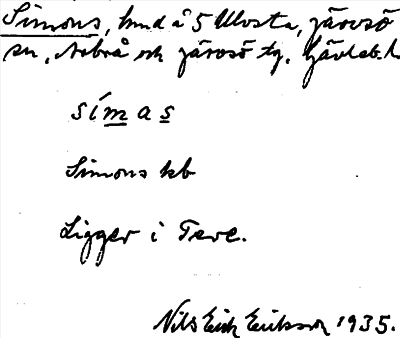 Simons, hmd å 5 Ulvsta, Järvsö
sn, Arbrå och Järvsö tg. Gävleb. l
símas
Simons kb
Ligger i Teve.
Nils Erik Eriksson 1935.